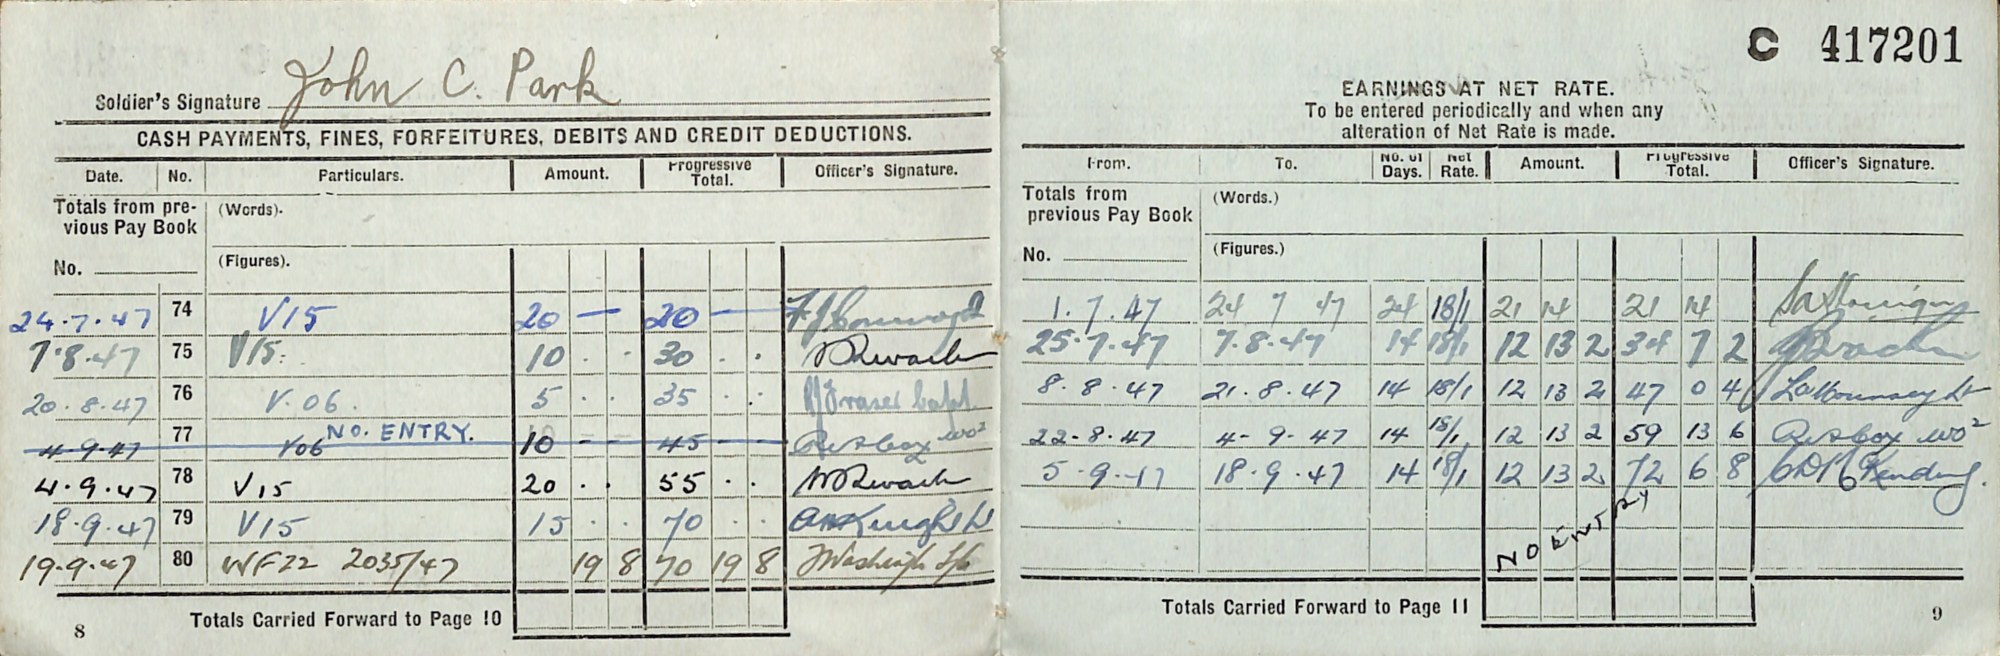 Soldier's Signature John C. Park
CASH PAYMENTS, FINES, FORFEITURES, DEBITS AND CREDIT DEDUCTIONS.
Date. No. Particulars. Amount. Progressive Total. Officer's Signature.
Totals from pre-
vious Pay Book
(Words).
No.
(Figures).
24.7.47 74 V15 20 — 20 —
7.8.47 75 V15. 10 . . 30 . .
20.8.47 76 V.06. 5 . . 35 . . Fraser Capt
4.9.47 77 V06 NO. ENTRY. 10 - - 45 - - WO2
4.9.47 78 V15 20 . . 55 . .
18.9.47 79 V15 15 . . 70 . .
19.9.47 80 WF22 2035/47 19 8 70 19 8
Totals Carried Forward to Page 10
8
C 417201
EARNINGS AT NET RATE.
To be entered periodically and when any
alteration of Net Rate is made.
From. To. No. of Days. Net Rate. Amount. Progressive Total. Officer's Signature.
Totals from
previous Pay Book
(Words.)
No.
(Figures.)
1.7.47 24 7 47 24 18/1 21 14 21 14
25.7.47 7.8.47 14 18/1 12 13 2 34 7 2
8.8.47 21.8.47 14 18/1 12 13 2 47 0 4
22-8.47 4-9.47 14 18/1 12 13 2 59 13 6 WO2
5.9.47 18.9.47 14 18/1 12 13 2 72 6 8
NO ENTRY
Totals Carried Forward to Page 11
9